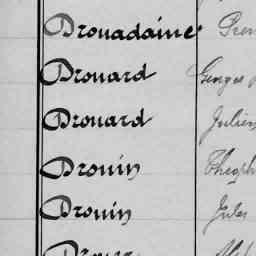 Drouadaine
Drouard Georges
Drouard Julien
Drouin
Drouin Jules